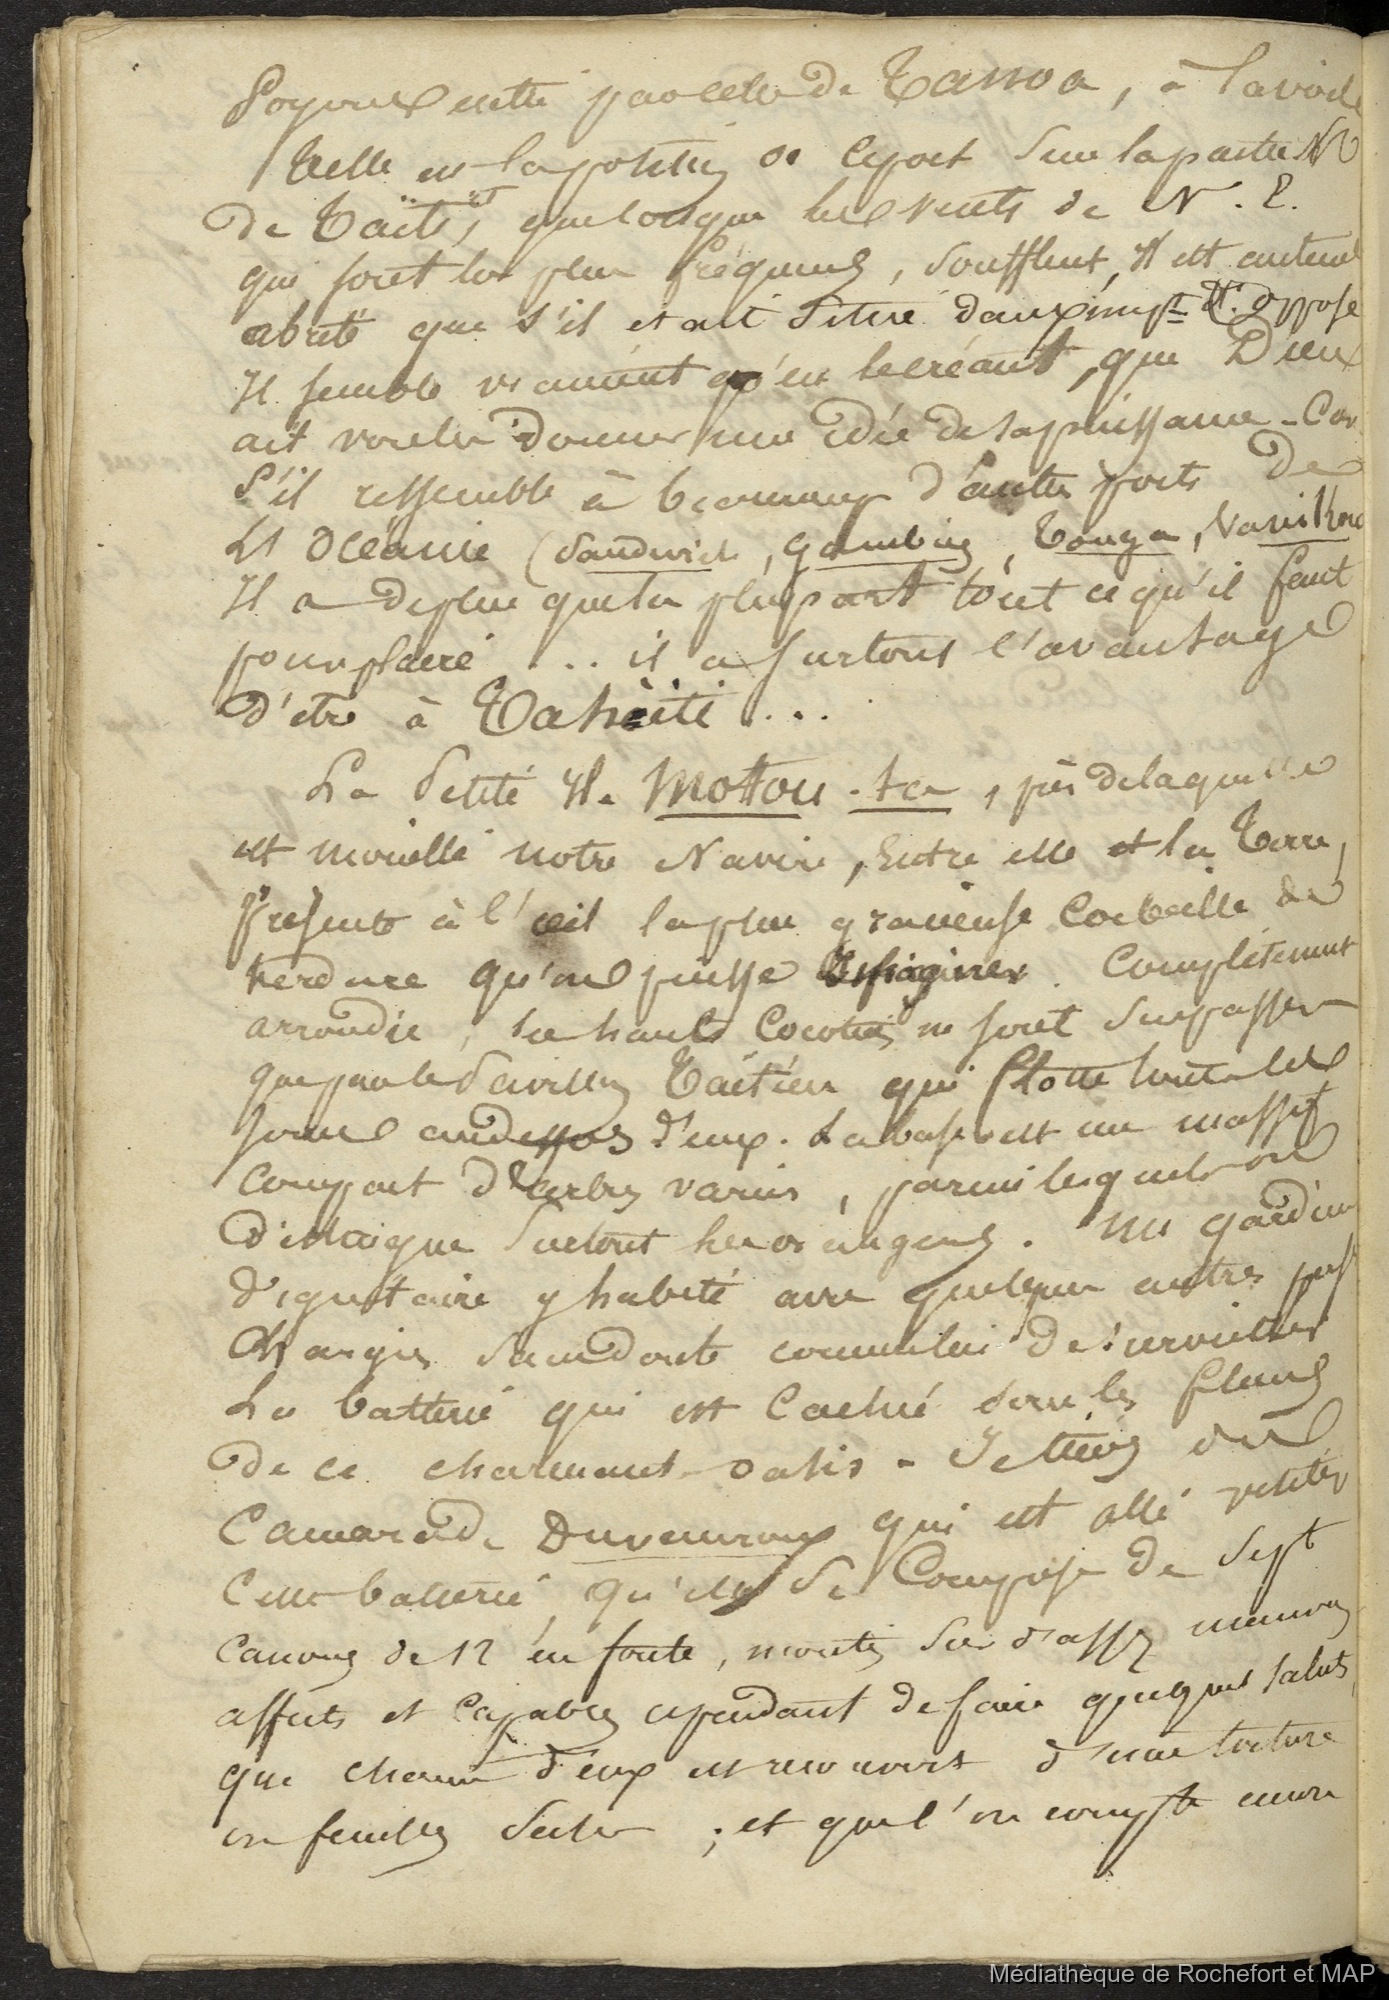 Payeur cette parcelle de Tanoa, à la voile
Telle est la position de ce port sur la partie N
de Taïti, que lorsque les vents de N. E.
qui sont les plus fréquens, soufflent, il est autant
abrité que s'il etait situé dans l'impt. opposé
Il semble vraiment qu'en le créant, que Dieu
ait voulu donner une idée de sa puissance - Car
S'il ressemble à beaucoup d'autres ports de
L'Océanie (Sandwich, Gambier, Tonga, Vanikoro
Il a de plus que la plupart tout ce qu'il faut
pour plaire ... il a surtout l'avantage
d'etre à Tahiiti ...
La Petite Ile Mottou-ta, près de laquelle
est mouillé notre Navire, Entre elle et la Terre,
Présente à l'œil la plus gracieuse Corbeille de
verdure qu'on puisse imaginer. Complètement
arrondie, ses hauts Cocotiers ne sont surpassés
que par le Pavillon Taïtien qui flotte
au dessus d'eux. La base est un massif
compact d'arbres variés, parmi lesquels on
distingue surtout les orangers. Un gardien
dignitaire y habite avec quelques autres
Chargés sans doute comme lui de surveiller
La batterie qui est Caché dans les flancs
de ce charmant oasis - Je tiens d'un
Camarade Duvauroux qui est allé visiter
Cette batterie, qu'elle se Compose de Sept
Canons de 12 en fonte, montés sur d'assez mauvais
affuts et capables cependant de faire quelques saluts,
que chacun d'eux est recouvert d'une toiture
en feuilles sèches ; et que l'on compte encore
Médiathèque de Rochefort et MAP